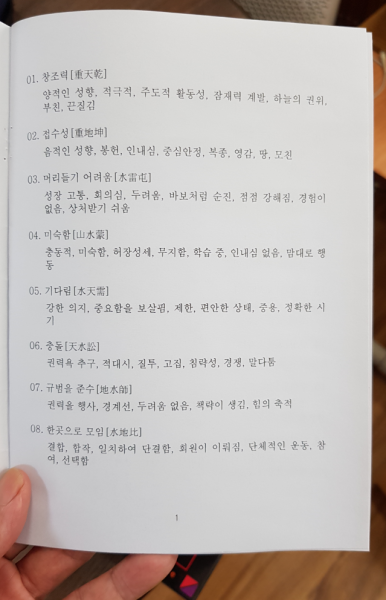 01. 창조력[重天乾]
양적인 성향, 적극적, 주도적 활동성, 잠재력 계발, 하늘의 권위,
부친, 끈질김
02. 접수성[重地坤]
음적인 성향, 봉헌, 인내심, 중심안정, 복종, 영감, 땅, 모친
03. 머리들기 어려움[水雷屯]
성장 고통, 회의심, 두려움, 바보처럼 순진, 점점 강해짐, 경험이
없음, 상처받기 쉬움
04. 미숙함[山水蒙]
충동적, 미숙함, 허장성세, 무지함, 학습 중, 인내심 없음, 맘대로 행
동
05. 기다림[水天需]
강한 의지, 중요함을 보살핌, 제한, 편안한 상태, 중용, 정확한 시
기
06. 충돌[天水訟]
권력욕 추구, 적대시, 질투, 고집, 침략성, 경쟁, 말다툼
07. 규범을 준수[地水師]
권력을 행사, 경계선, 두려움 없음, 책략이 생김, 힘의 축적
08. 한곳으로 모임[水地比]
결합, 합작, 일치하여 단결함, 회원이 이뤄짐, 단체적인 운동, 참
여, 선택함
1